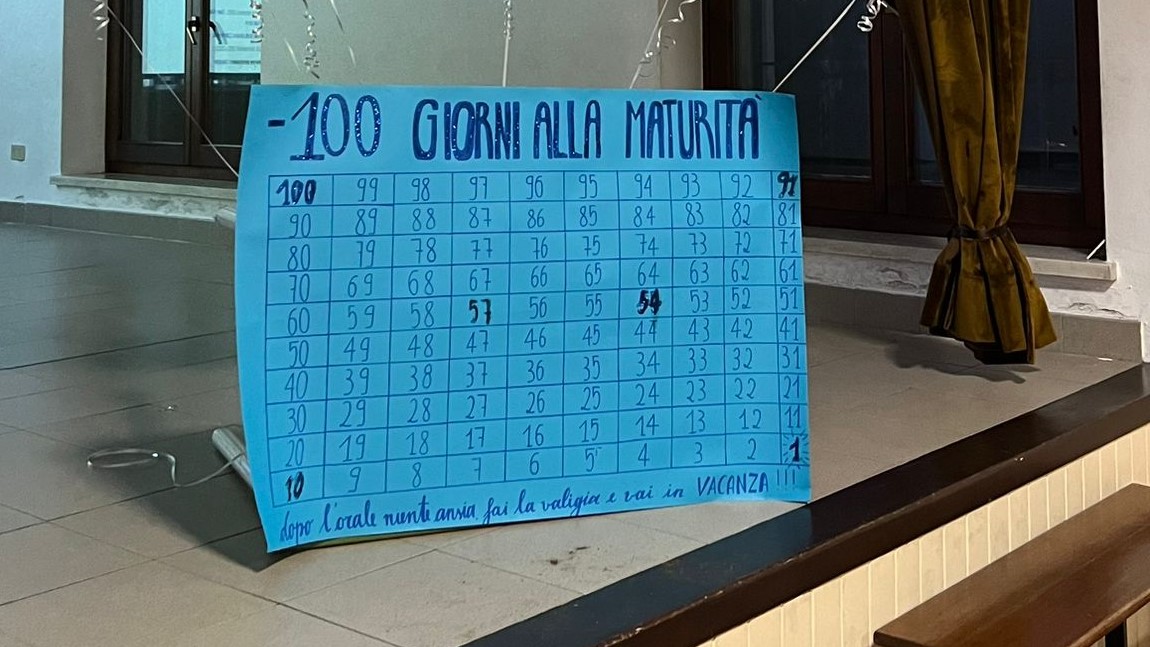 -100 GIORNI ALLA MATURITÀ
100 99 98 97 96 95 94 93 92 91
90 89 88 87 86 85 84 83 82 81
80 79 78 77 76 75 74 73 72 71
70 69 68 67 66 65 64 63 62 61
60 59 58 57 56 55 54 53 52 51
50 49 48 47 46 45 44 43 42 41
40 39 38 37 36 35 34 33 32 31
30 29 28 27 26 25 24 23 22 21
20 19 18 17 16 15 14 13 12 11
10 9 8 7 6 5 4 3 2 1
dopo l'orale niente ansia, fai la valigia e vai in VACANZA !!!